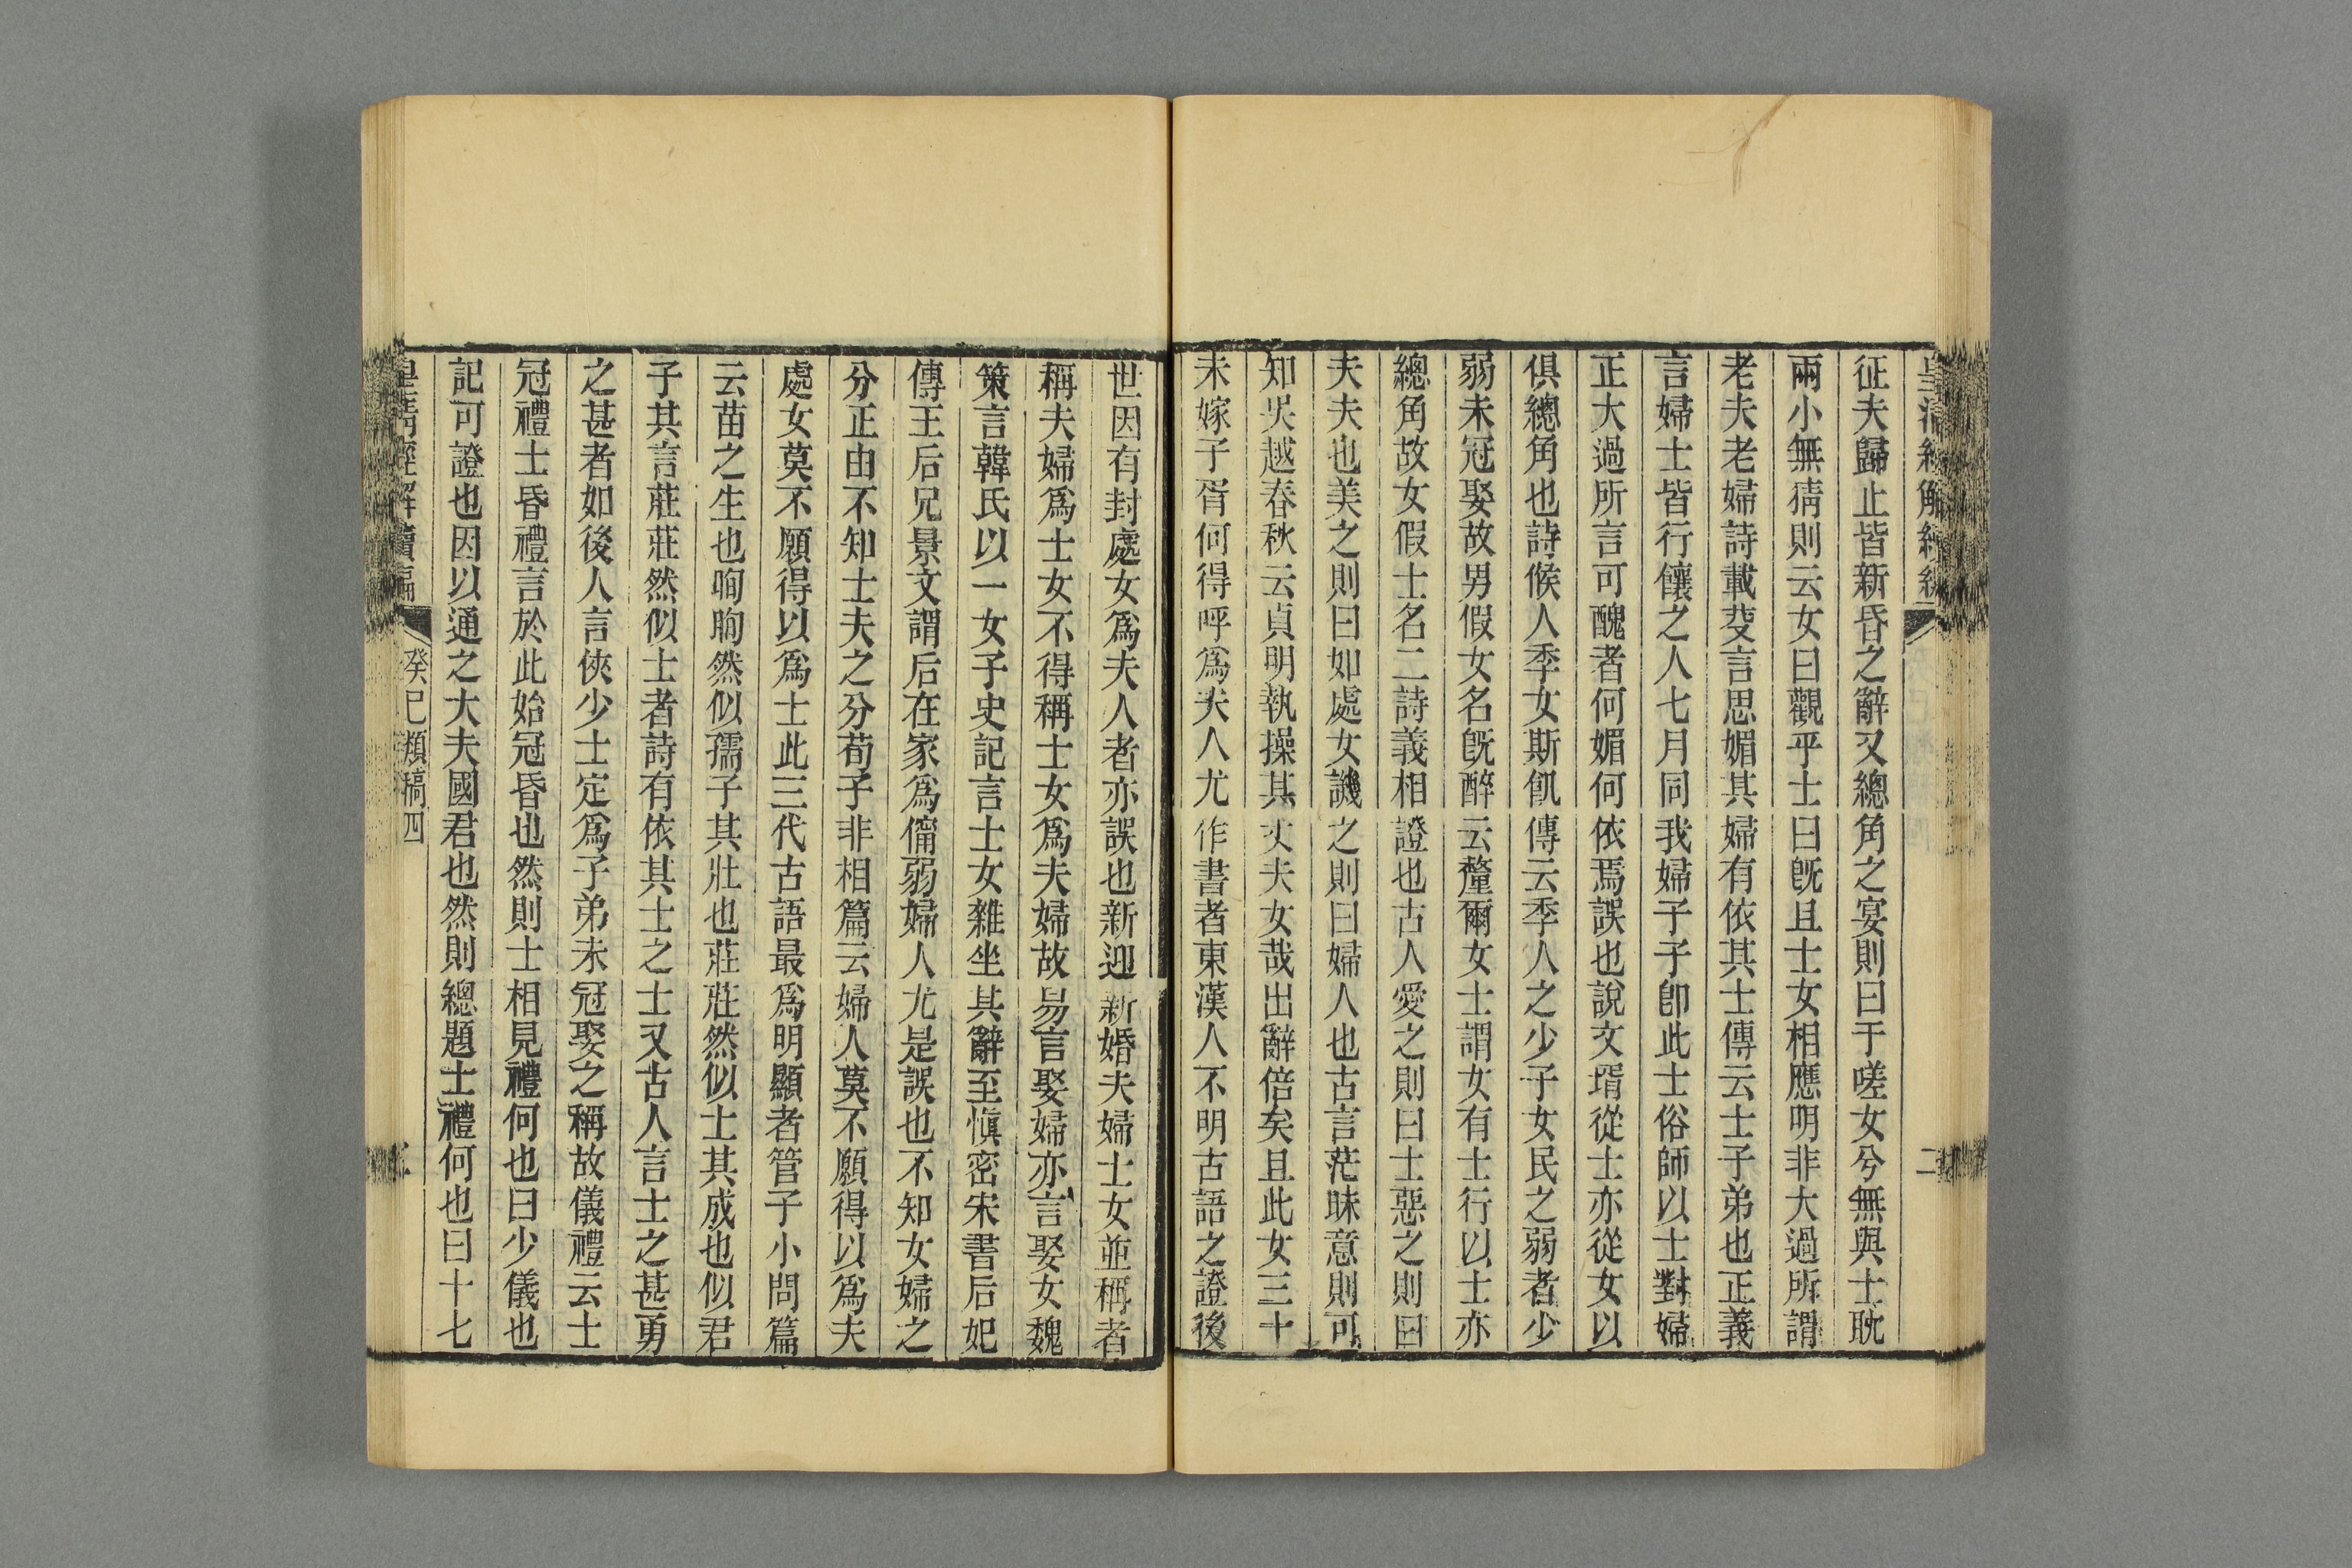 皇清經解續編
二
征夫歸止皆新昏之辭又總角之宴則曰于嗟女兮無與士耽
兩小無猜則云女曰觀乎士曰旣且士女相應明非大過所謂
老夫老婦詩載芟言思媚其婦有依其士傳云士子弟也正義
言婦士皆行饟之人七月同我婦子子卽此士俗師以士對婦
正大過所言可醜者何媚何依焉誤也說文壻從士亦從女以
俱總角也詩候人季女斯飢傳云季人之少子女民之弱者少
弱未冠娶故男假女名旣醉云釐爾女士謂女有士行以士亦
總角故女假士名二詩義相證也古人愛之則曰士惡之則曰
夫夫也美之則曰如處女譏之則曰婦人也古言茫昧意則可
知吳越春秋云貞明執操其丈夫女哉出辭倍矣且此女三十
未嫁子胥何得呼爲夫人尤作書者東漢人不明古語之證後
世因有封處女爲夫人者亦誤也新迎新婚夫婦士女並稱者
稱夫婦爲士女不得稱士女爲夫婦故易言娶婦亦言娶女魏
策言韓氏以一女子史記言士女雜坐其辭至愼密宋書后妃
傳王后兄景文謂后在家爲儜弱婦人尤是誤也不知女婦之
分正由不知士夫之分荀子非相篇云婦人莫不願得以爲夫
處女莫不願得以爲士此三代古語最爲明顯者管子小問篇
云苗之生也眴眴然似孺子其壯也莊莊然似士其成也似君
子其言莊莊然似士者詩有依其士之士又古人言士之甚勇
之甚者如後人言俠少士定爲子弟未冠娶之稱故儀禮云士
冠禮士昏禮言於此始冠昏也然則士相見禮何也曰少儀也
記可證也因以通之大夫國君也然則總題士禮何也曰十七
皇清經解續編
癸巳類稿四